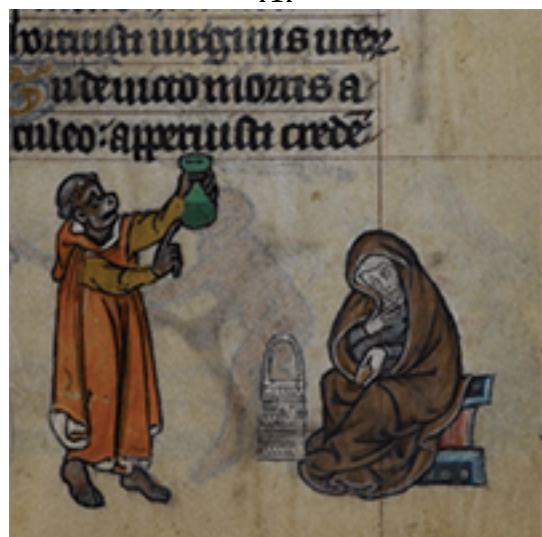 horruisti uirginis uter
Tu deuicto mortis a
culeo: apperuisti credē